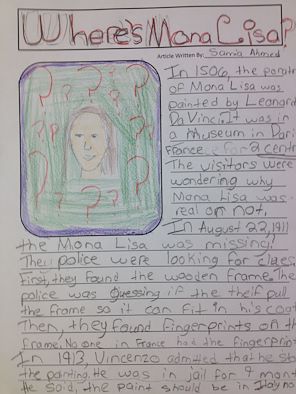 Where's Mona Lisa?
Article Written By: Samia Ahmed
In 1506, the portra
of Mona Lisa was
painted by Leonard
Da Vinci. It was in
a museum in Paris
France for 2 centr
The visitors were
wondering why
Mona Lisa was
real or not.
In August 22, 1911
the Mona Lisa was missing!
The police were looking for clues.
First, they found the wooden frame. The
police was guessing if the theif pull
the frame so it can fit in his coat
Then, they found fingerprints on th
frame. No one in France had the fingerprint
In 1913, Vincenzo admitted that he sto
the painting. He was in jail for 9 mont
He said, the paint should be in Italy no